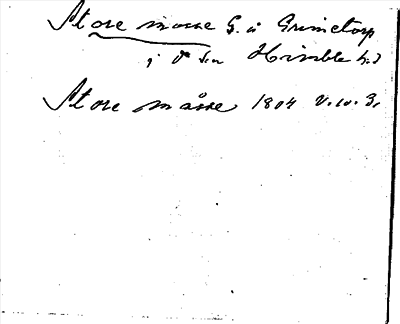 Store mosse G. å Grimetorp
i d:o sn Himble hd
Store måsse 1804 v. w. 3.